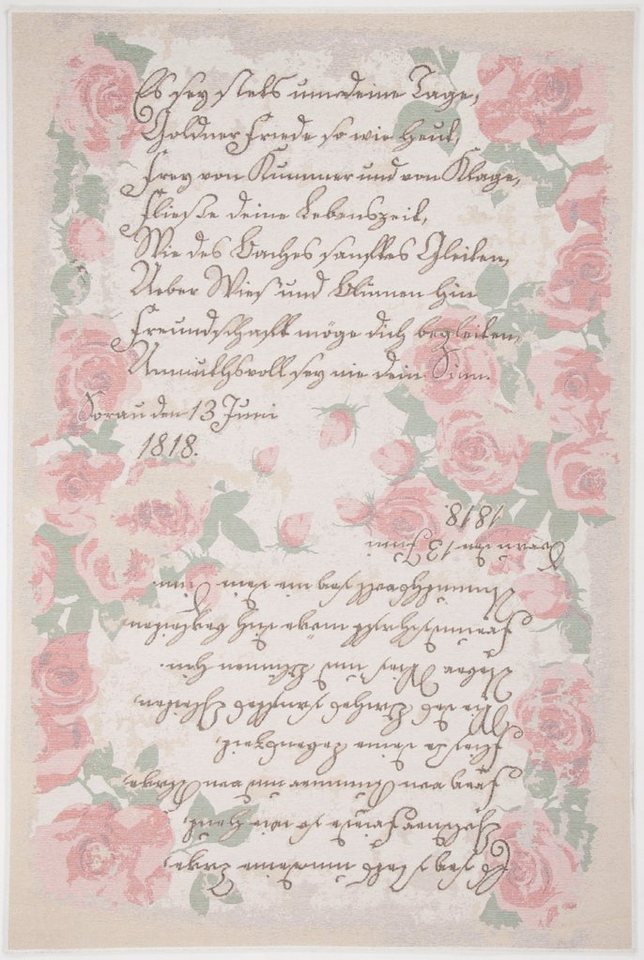 Es sey stets um deine Tage,
Goldner Friede so wie heut,
Frey von Kummer und von Klage,
Fließe deine Lebenszeit,
Wie des Baches sanftes Gleiten,
Ueber Wies und Blumen hin
Freundschaft möge dich begleiten,
Anmuthsvoll sey nie dein Sinn.
Sorau den 13 Juni
1818.
Es sey stets um deine Tage,
Goldner Friede so wie heut,
Frey von Kummer und von Klage,
Fließe deine Lebenszeit,
Wie des Baches sanftes Gleiten,
Ueber Wies und Blumen hin.
Freundschaft möge dich begleiten,
Anmuthsvoll sey wie dein Sinn.
Sorau den 13 Juni
1818.